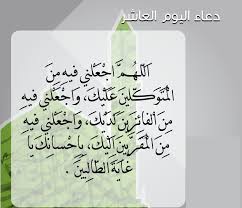 دعاء اليوم العاشر
اَللّـهُمَّ اجْعَلْني فيهِ مِنَ
الْمُتَوَكِّلينَ عَلَيْكَ، وَاجْعَلْني فيهِ
مِنَ الْفائِزينَ لَدَيْكَ، وَاجْعَلْني فيهِ
مِنَ الْمُقَرَّبينَ اِلَيْكَ، بِاِحْسانِكَ يا
غايَةَ الطّالِبينَ .